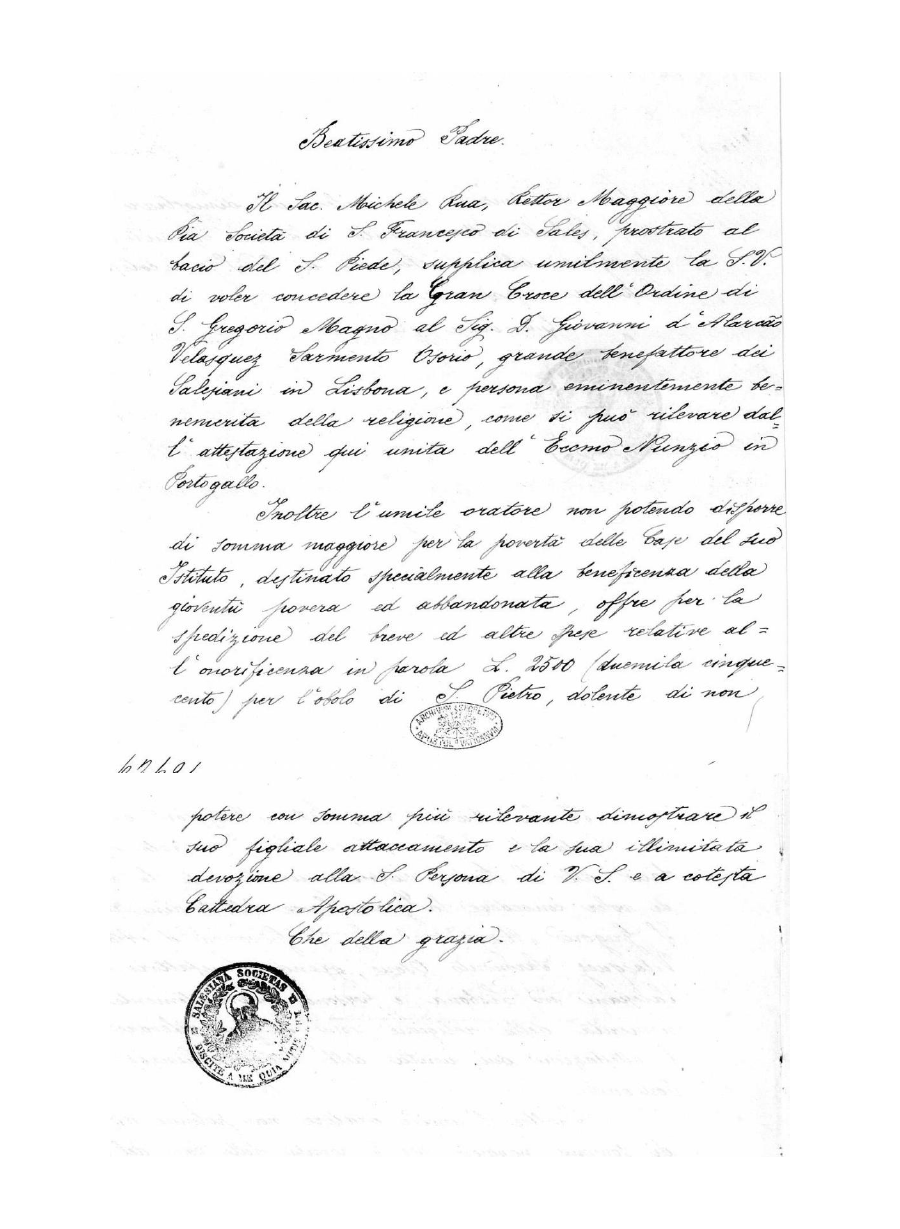 Beatissimo Padre.
Il Sac. Michele Rua, Rettor Maggiore della
Pia Società di S. Francesco di Sales, prostrato al
bacio del S. Piede, supplica umilmente la S. V.
di voler concedere la Gran Croce dell'Ordine di
S. Gregorio Magno al Sig. D. Giovanni d'Alarcão
Velasquez Sarmento Osorio, grande benefattore dei
Salesiani in Lisbona, e persona eminentemente be=
nemerita della religione, come si può rilevare dal=
l'attestazione qui unita dell'Eccmo Nunzio in
Portogallo.
Inoltre l'umile oratore non potendo disporre
di somma maggiore per la povertà delle Case del suo
Istituto, destinato specialmente alla beneficenza della
gioventù povera ed abbandonata, offre per la
spedizione del breve ed altre spese relative al=
l'onorificenza in parola L. 2500 (duemila cinque=
cento) per l'obolo di S. Pietro, dolente di non
ARCHIVUM SECRETUM
APOSTOL. VATICANUM
potere con somma più rilevante dimostrare il
suo figliale attaccamento e la sua illimitata
devozione alla S. Persona di V. S. e a cotesta
Cattedra Apostolica.
Che della grazia.
SALESIANA SOCIETAS
DISCITE A ME QUIA MITIS